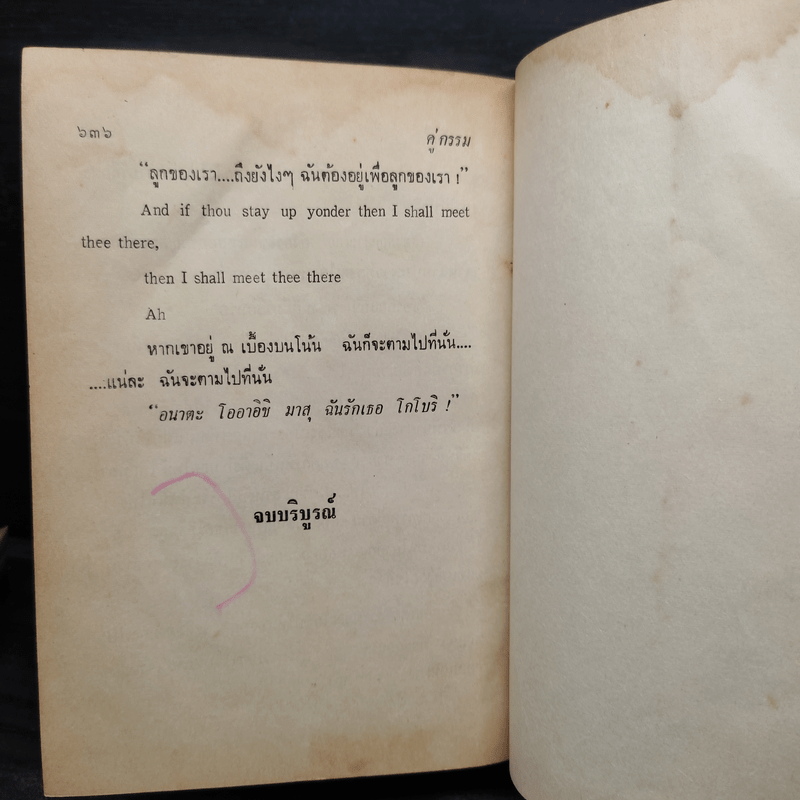 ๖๓๖
คู่กรรม
“ลูกของเรา....ถึงยังไงๆ ฉันต้องอยู่เพื่อลูกของเรา !”
And if thou stay up yonder then I shall meet
thee there,
then I shall meet thee there
Ah
หากเขาอยู่ ณ เบื้องบนโน้น ฉันก็จะตามไปที่นั่น....
....แน่ละ ฉันจะตามไปที่นั่น
“อนาตะ โออาอิชิ มาสุ ฉันรักเธอ โกโบริ !”
จบบริบูรณ์